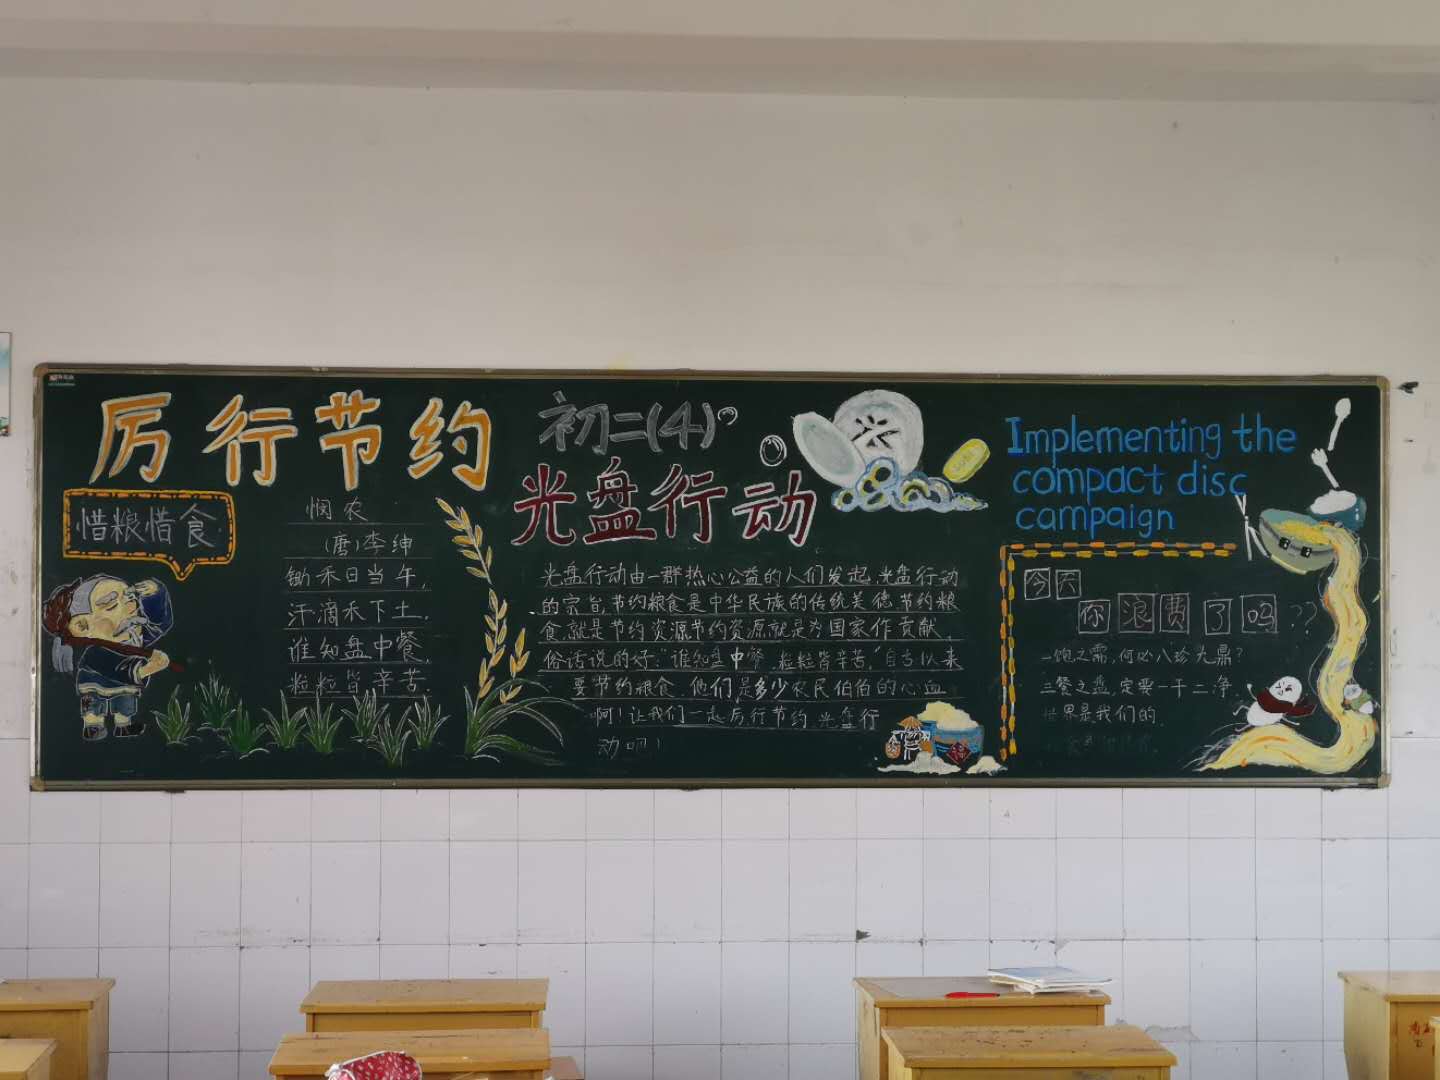 厉行节约
惜粮惜食
悯农
(唐)李绅
锄禾日当午,
汗滴禾下土,
谁知盘中餐,
粒粒皆辛苦.
初二(4)
光盘行动
光盘行动由一群热心公益的人们发起,光盘行动
的宗旨,节约粮食是中华民族的传统美德,节约粮
食,就是节约资源,节约资源,就是为国家作贡献,
俗话说的好:"谁知盘中餐,粒粒皆辛苦,"自古以来
要节约粮食,他们是多少农民伯伯的心血
啊!让我们一起厉行节约,光盘行
动吧!
Implementing the
compact disc
campaign
今天
你浪费了吗??
一饱之需,何必八珍九鼎?
三餐之盘,定要一干二净
世界是我们的,